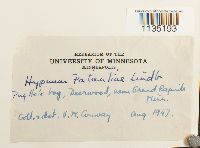 1135193
RESEARCH OF THE
UNIVERSITY OF MINNESOTA
MINNEAPOLIS
Hypnum Lindb
Bog, Deerwood, near Grand Rapids
Minn.
Collected. H. M. Conway Aug. 1947.